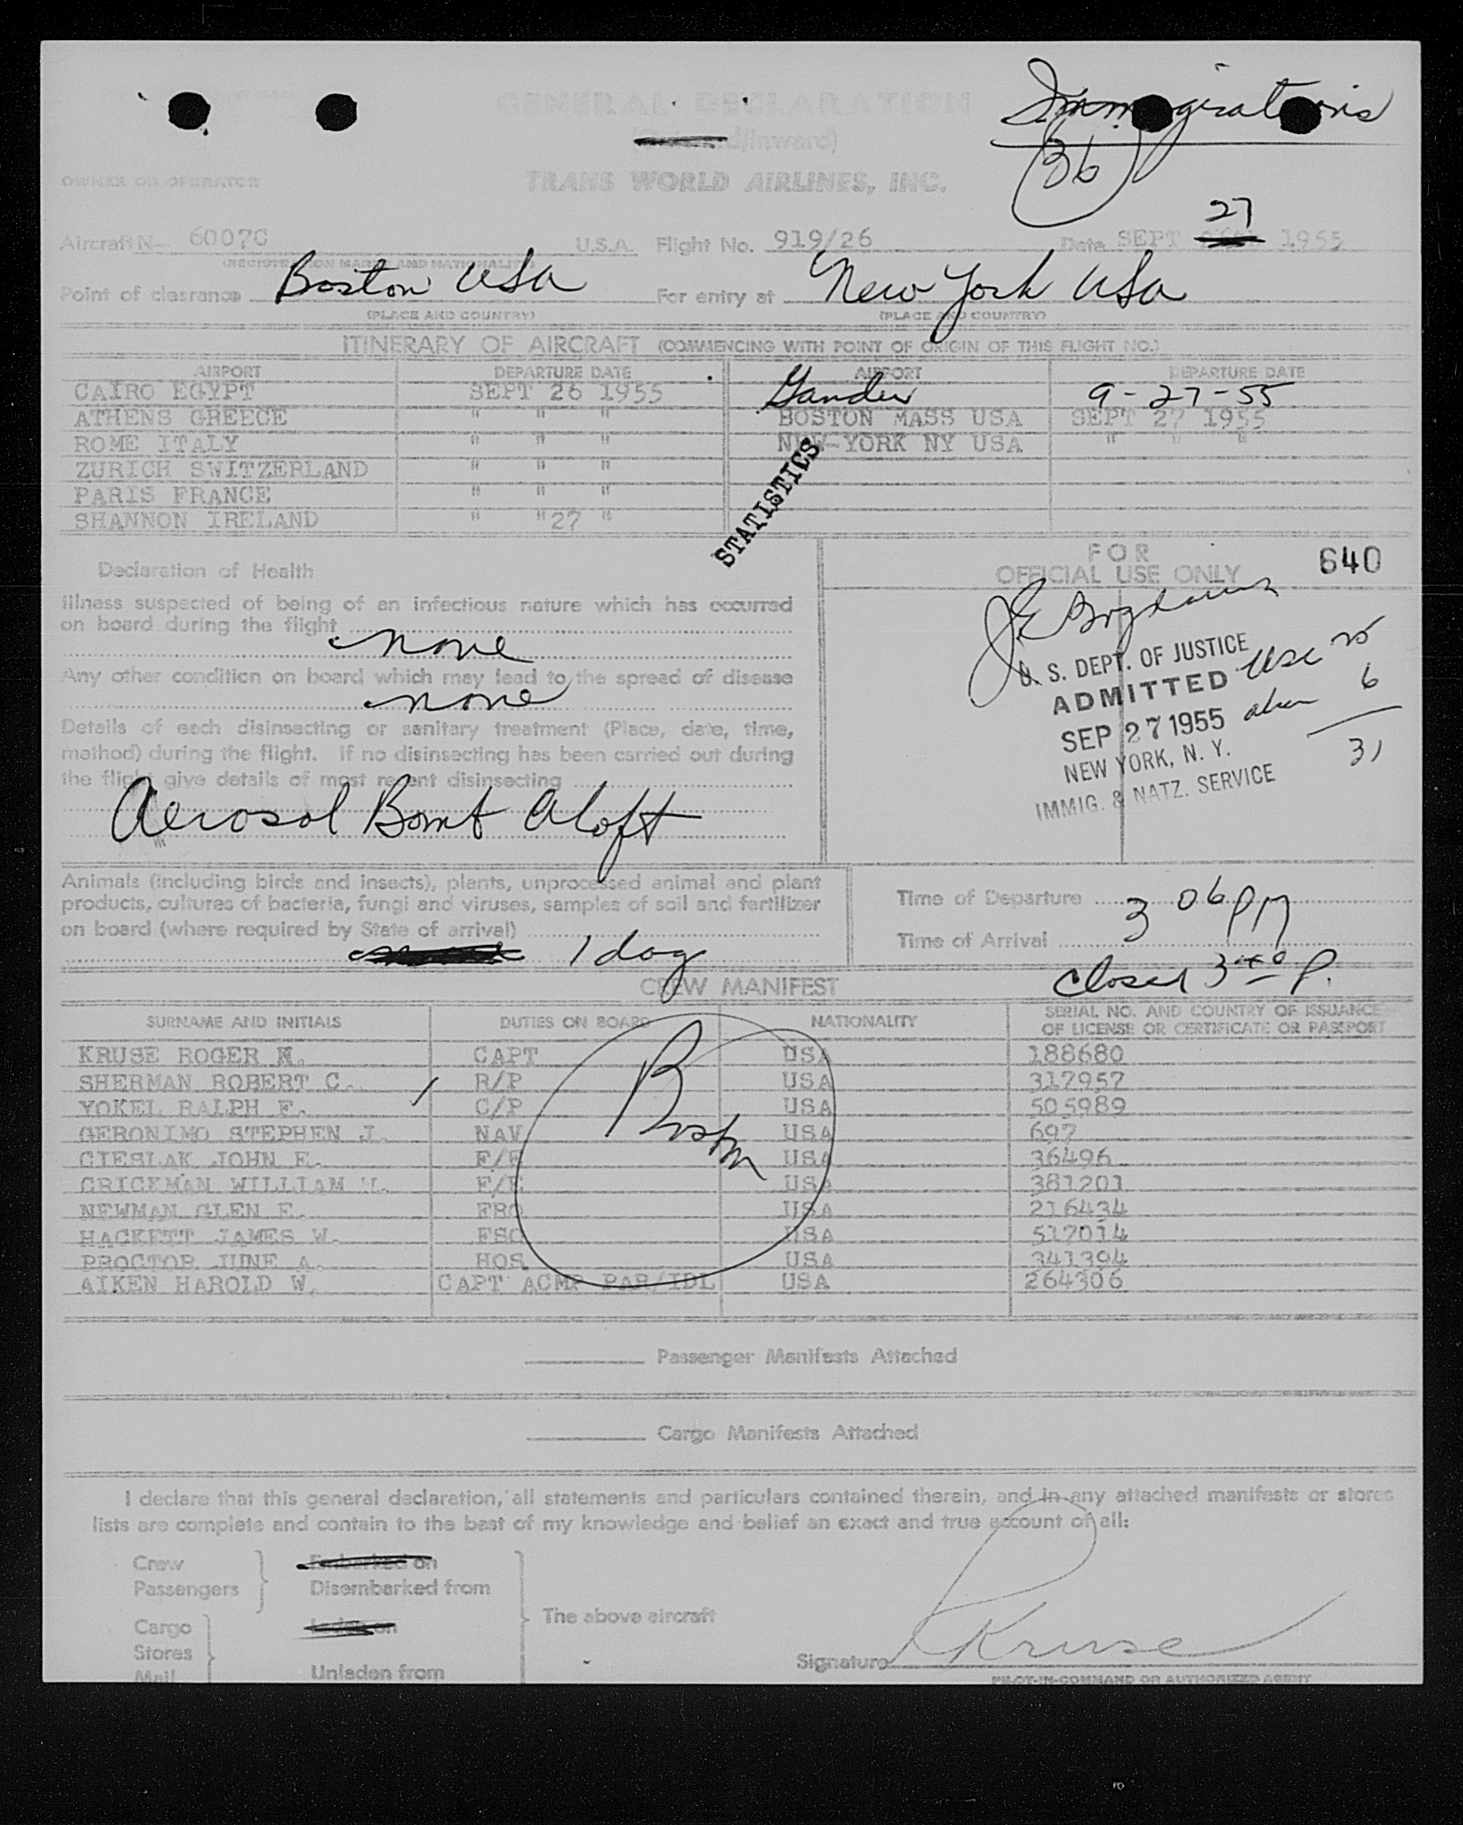 Immigrations
36
GENERAL DECLARATION
(Outward/Inward)
OWNER OR OPERATOR
TRANS WORLD AIRLINES, INC.
27
Aircraft N— 6007C U.S.A. Flight No. 919/26 Date SEPT 1955
(REGISTRATION MARKS AND NATIONALITY)
Point of clearance Boston USA For entry at New York USA
(PLACE AND COUNTRY) (PLACE AND COUNTRY)
ITINERARY OF AIRCRAFT (COMMENCING WITH POINT OF ORIGIN OF THIS FLIGHT NO.)
AIRPORT DEPARTURE DATE AIRPORT DEPARTURE DATE
CAIRO EGYPT SEPT 26 1955 Gander 9-27-55
ATHENS GREECE " " " BOSTON MASS USA SEPT 27 1955
ROME ITALY " " " NEW-YORK NY USA " " "
ZURICH SWITZERLAND " " "
PARIS FRANCE " " "
SHANNON IRELAND " "27 "
STATISTICS
Declaration of Health
FOR
OFFICIAL USE ONLY
640
Illness suspected of being of an infectious nature which has occurred
on board during the flight
none
Any other condition on board which may lead to the spread of disease
none
Details of each disinsecting or sanitary treatment (Place, date, time,
method) during the flight. If no disinsecting has been carried out during
the flight give details of most recent disinsecting
Aerosol Bomb Aloft
U. S. DEPT. OF JUSTICE
ADMITTED USC 25
SEP 27 1955 alien 6
NEW YORK, N. Y. 31
IMMIG. & NATZ. SERVICE
Animals (including birds and insects), plants, unprocessed animal and plant
products, cultures of bacteria, fungi and viruses, samples of soil and fertilizer
on board (where required by State of arrival)
1 dog
Time of Departure
Time of Arrival 3 06 PM
Closed 3 P.
CREW MANIFEST
SURNAME AND INITIALS DUTIES ON BOARD NATIONALITY SERIAL NO. AND COUNTRY OF ISSUANCE
OF LICENSE OR CERTIFICATE OR PASSPORT
KRUSE ROGER K. CAPT USA 188680
SHERMAN ROBERT C. R/P USA 317957
YOKEL RALPH F. C/P USA 505989
GERONIMO STEPHEN J. NAV USA 697
CIESLAK JOHN E. F/E USA 36496
CRICKMAN WILLIAM F/E USA 381201
NEWMAN GLEN E. FRO USA 216434
HACKETT JAMES W. FSO USA 517014
PROCTOR JUNE A. HOS USA 341394
AIKEN HAROLD W. CAPT ACMP PAR/IDL USA 264306
Boston
Passenger Manifests Attached
Cargo Manifests Attached
I declare that this general declaration, all statements and particulars contained therein, and in any attached manifests or stores
lists are complete and contain to the best of my knowledge and belief an exact and true account of all:
Crew Embarked on
Passengers Disembarked from
Cargo Laden on
The above aircraft
Stores
Mail Unladen from
Signature R Kruse
PILOT-IN-COMMAND OR AUTHORIZED AGENT